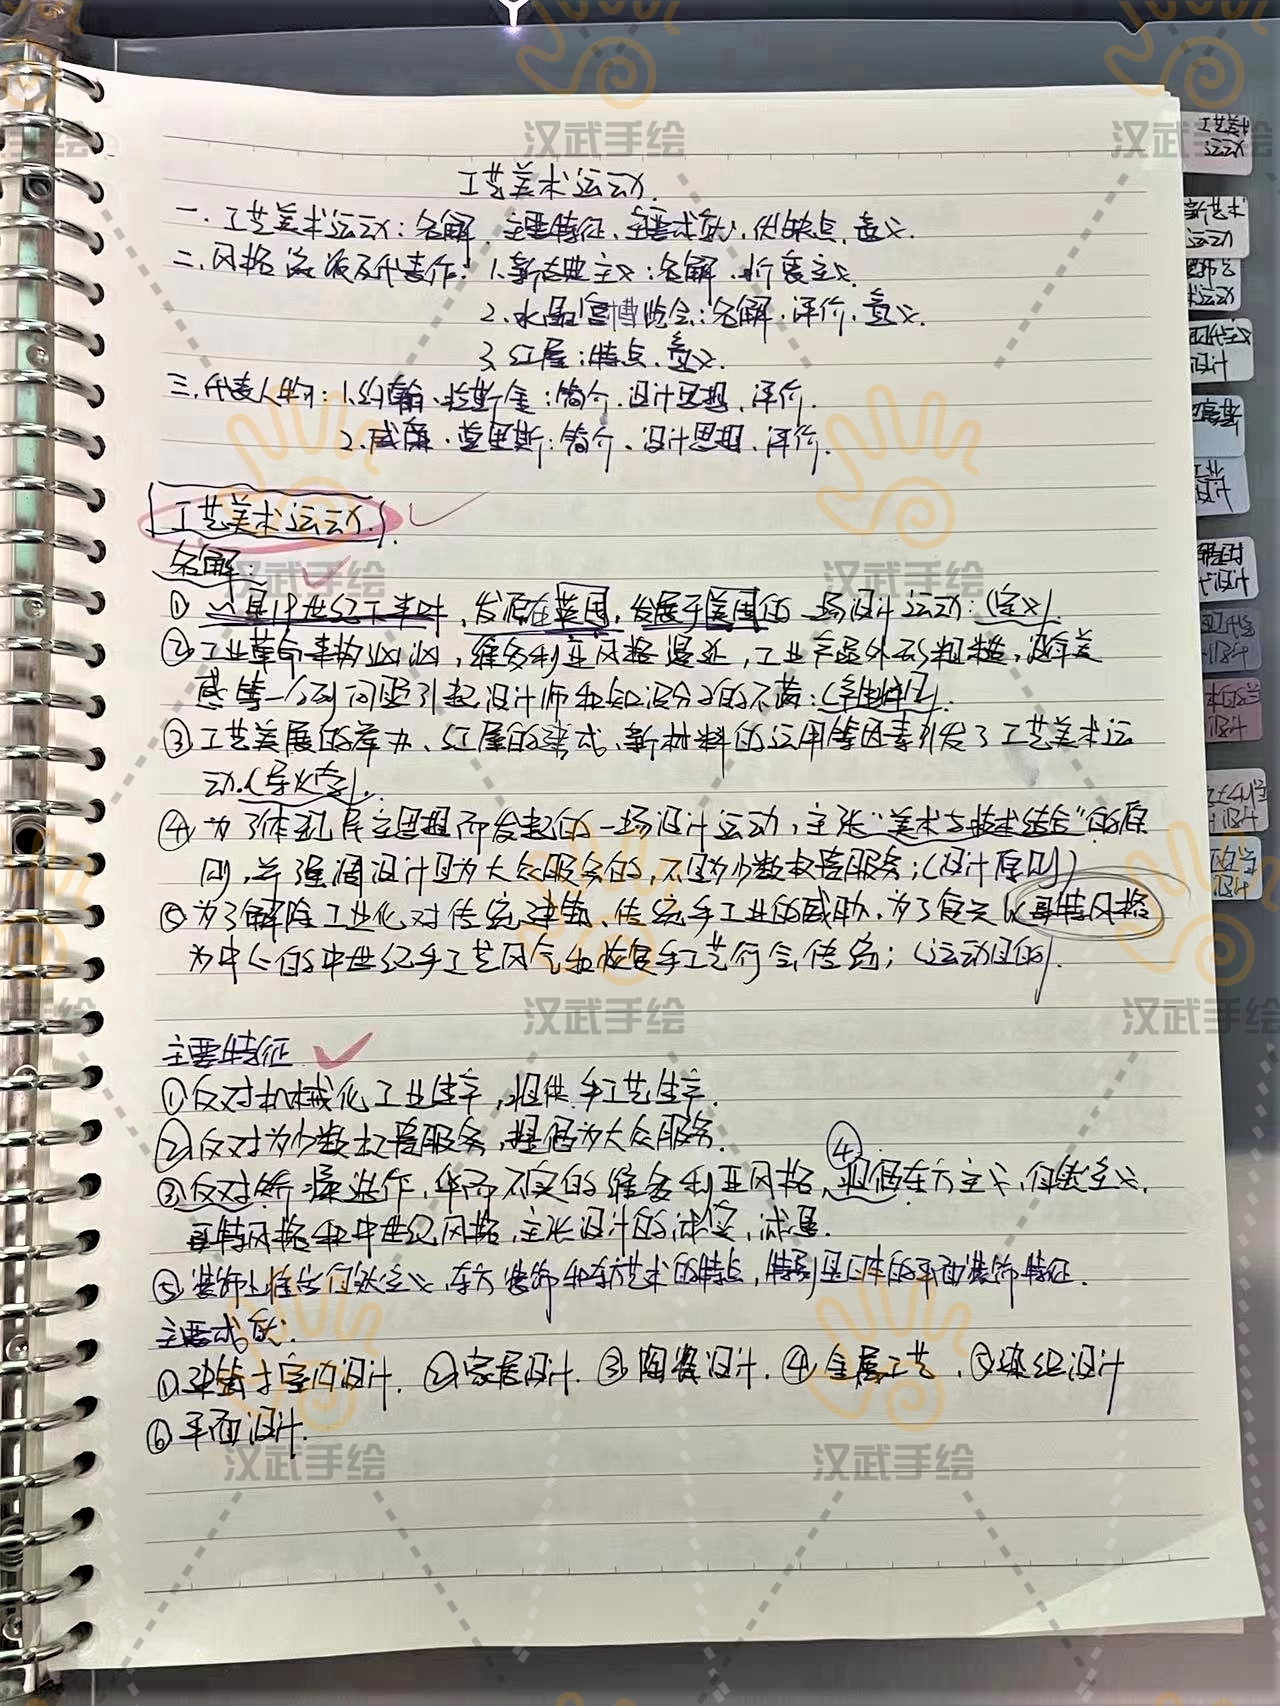 工艺美术运动.
一. 工艺美术运动: 名解. 主要特征. 主要成就. 优缺点. 意义.
二. 风格流派及代表作: 1.新古典主义: 名解. 折衷主义.
2.水晶宫博览会: 名解. 评价. 意义.
3.红屋: 特点. 意义.
三. 代表人物: 1.约翰·拉斯金: 简介. 设计思想. 评价.
2.威廉·莫里斯: 简介. 设计思想. 评价.
工艺美术运动.
名解:
① 是19世纪下半叶, 发源在英国, 发展于美国的一场设计运动: (定义)
② 工业革命来势汹汹, 维多利亚风格蔓延, 工业产品外形粗糙, 没有美
感等一系列问题引起设计师和知识分子的不满:
③ 工艺美展的举办、红屋的建成、新材料的运用等因素引发了工艺美术运
动.(导火索).
④ 为了体现民主思想而发起的一场设计运动, 主张“美术与技术结合”的原
则, 并强调设计是为大众服务的, 不是为少数权贵服务; (设计原则)
⑤ 为了解除工业化对传统建筑、传统手工业的威胁. 为了复兴以哥特风格
为中心的中世纪手工艺风气和恢复手工艺行会传统; (运动目的).
主要特征
① 反对机械化工业生产, 提供手工艺生产.
② 反对为少数权贵服务, 提倡为大众服务.
③ 反对矫揉造作, 华而不实的维多利亚风格, ④ 提倡东方主义, 自然主义,
哥特风格和中世纪风格, 主张设计的诚实, 诚恳.
⑤ 装饰上推崇自然主义, 东方装饰和东方艺术的特点, 特别是日本的平面装饰特征.
主要成就:
① 建筑与室内设计. ② 家居设计. ③ 陶瓷设计. ④ 金属工艺. ⑤ 染织设计
⑥ 平面设计.
工艺美术
运动
新艺术
运动
汉武手绘